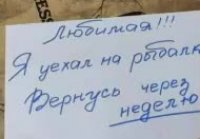 Любимая!!!
Я уехал на рыбалк
Вернусь через
неделю
ESS